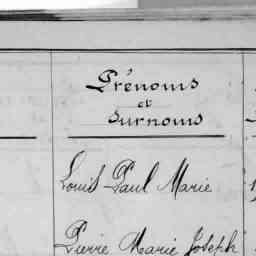 Prénoms
et
Surnoms
Louis Paul Marie
Pierre Marie Joseph